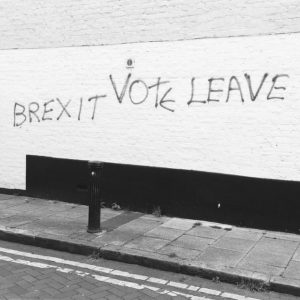 BREXIT VOTE LEAVE